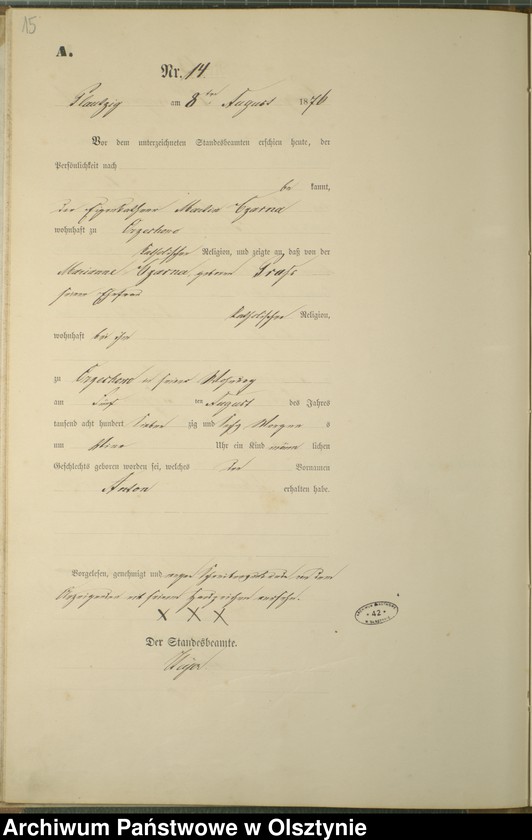 15
A.
Nr. 14.
am 8ten August 1876
Vor dem unterzeichneten Standesbeamten erschien heute, der
Persönlichkeit nach
be kannt,
der Martin Czarna
wohnhaft zu
katholischer Religion, und zeigte an, daß von der
Marianne Czarna, geborene
seiner Ehefrau
katholischer Religion,
wohnhaft bei ihm
zu in seiner Wohnung
am fünf ten August des Jahres
tausend acht hundert sieben zig und sechs Morgens
um Uhr ein Kind männ lichen
Geschlechts geboren worden sei, welches den Vornamen
Anton erhalten habe.
Vorgelesen, genehmigt und wegen von dem
Anzeigenden mit seinem Handzeichen versehen.
X X X
Der Standesbeamte.
42
Archiwum Państwowe w Olsztynie